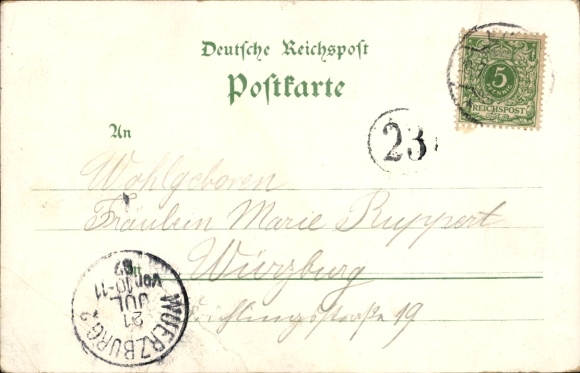 Deutsche Reichspost
Postkarte
5
PFENNIG
REICHSPOST
An
23
Wohlgeboren
Fräulein Marie Ruppert
Würzburg
19
WUERZBURG 2
21
JUL
10-11
Vor.
97